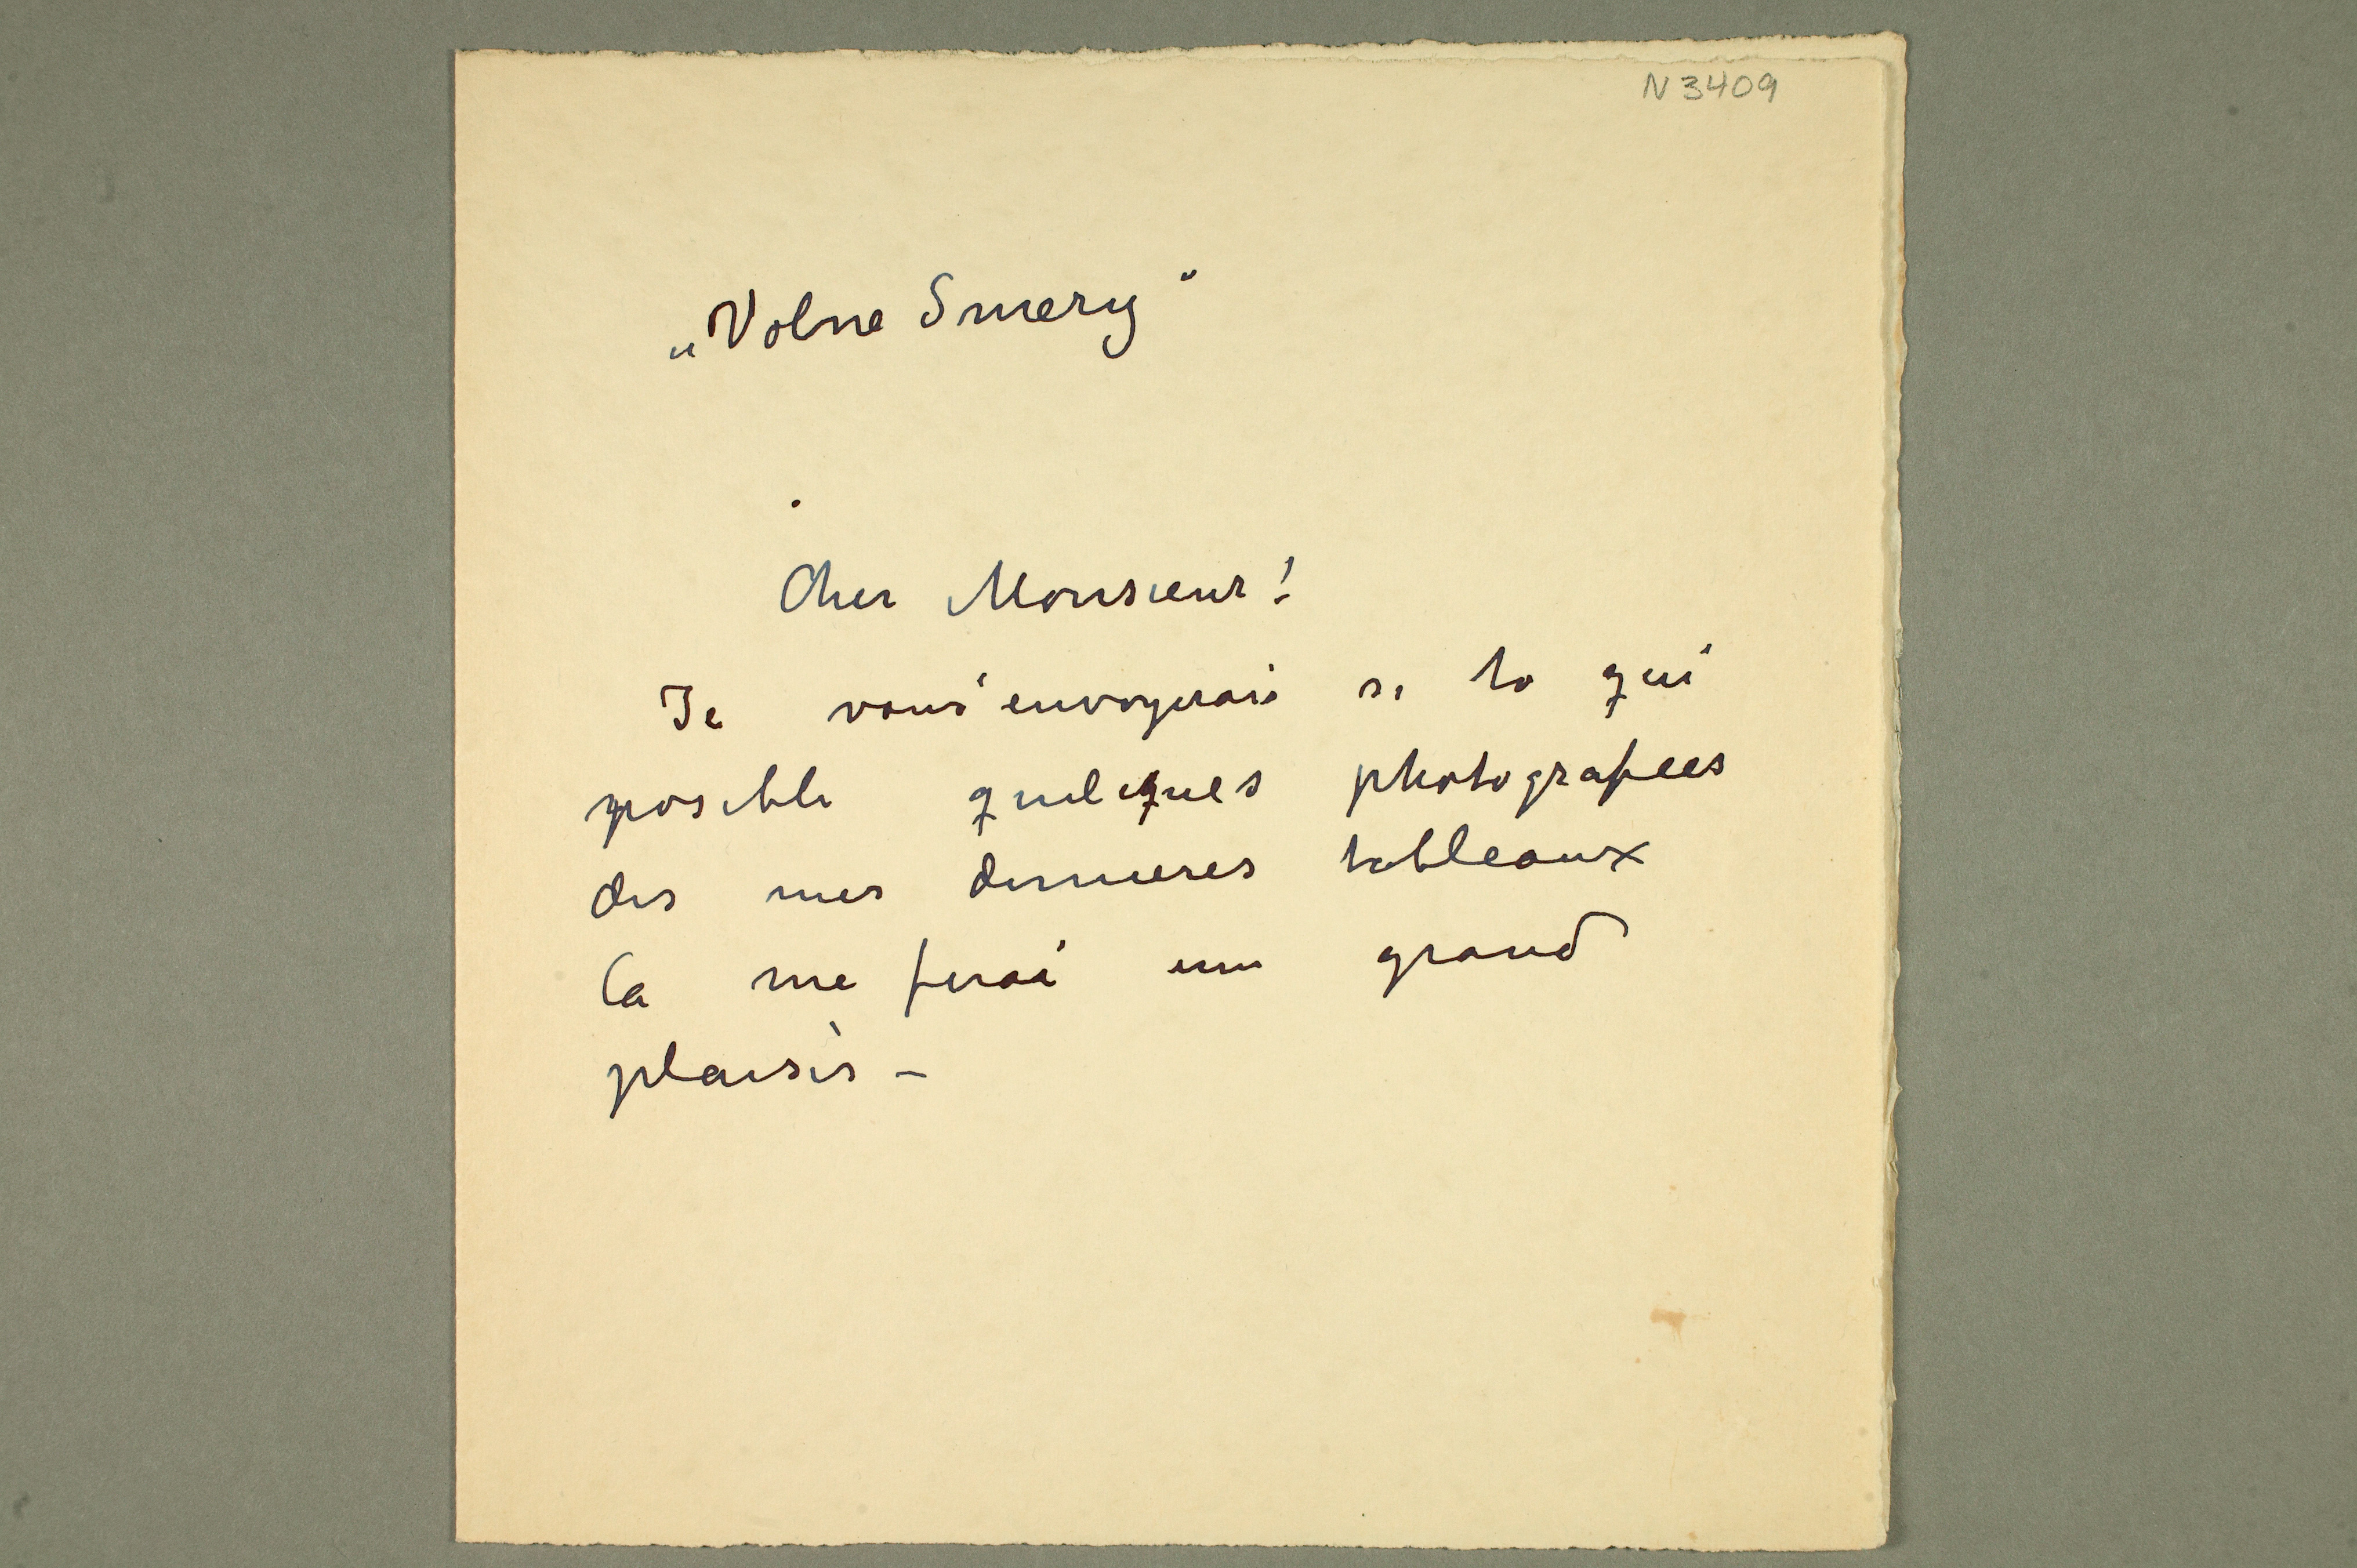 N 3409
„Volne Smery"
Cher Monsieur!
Je vous envoyerais si to qui
posible quelques photografees
des mes dernieres tableaux
Ca me ferai un grand
plaisir –